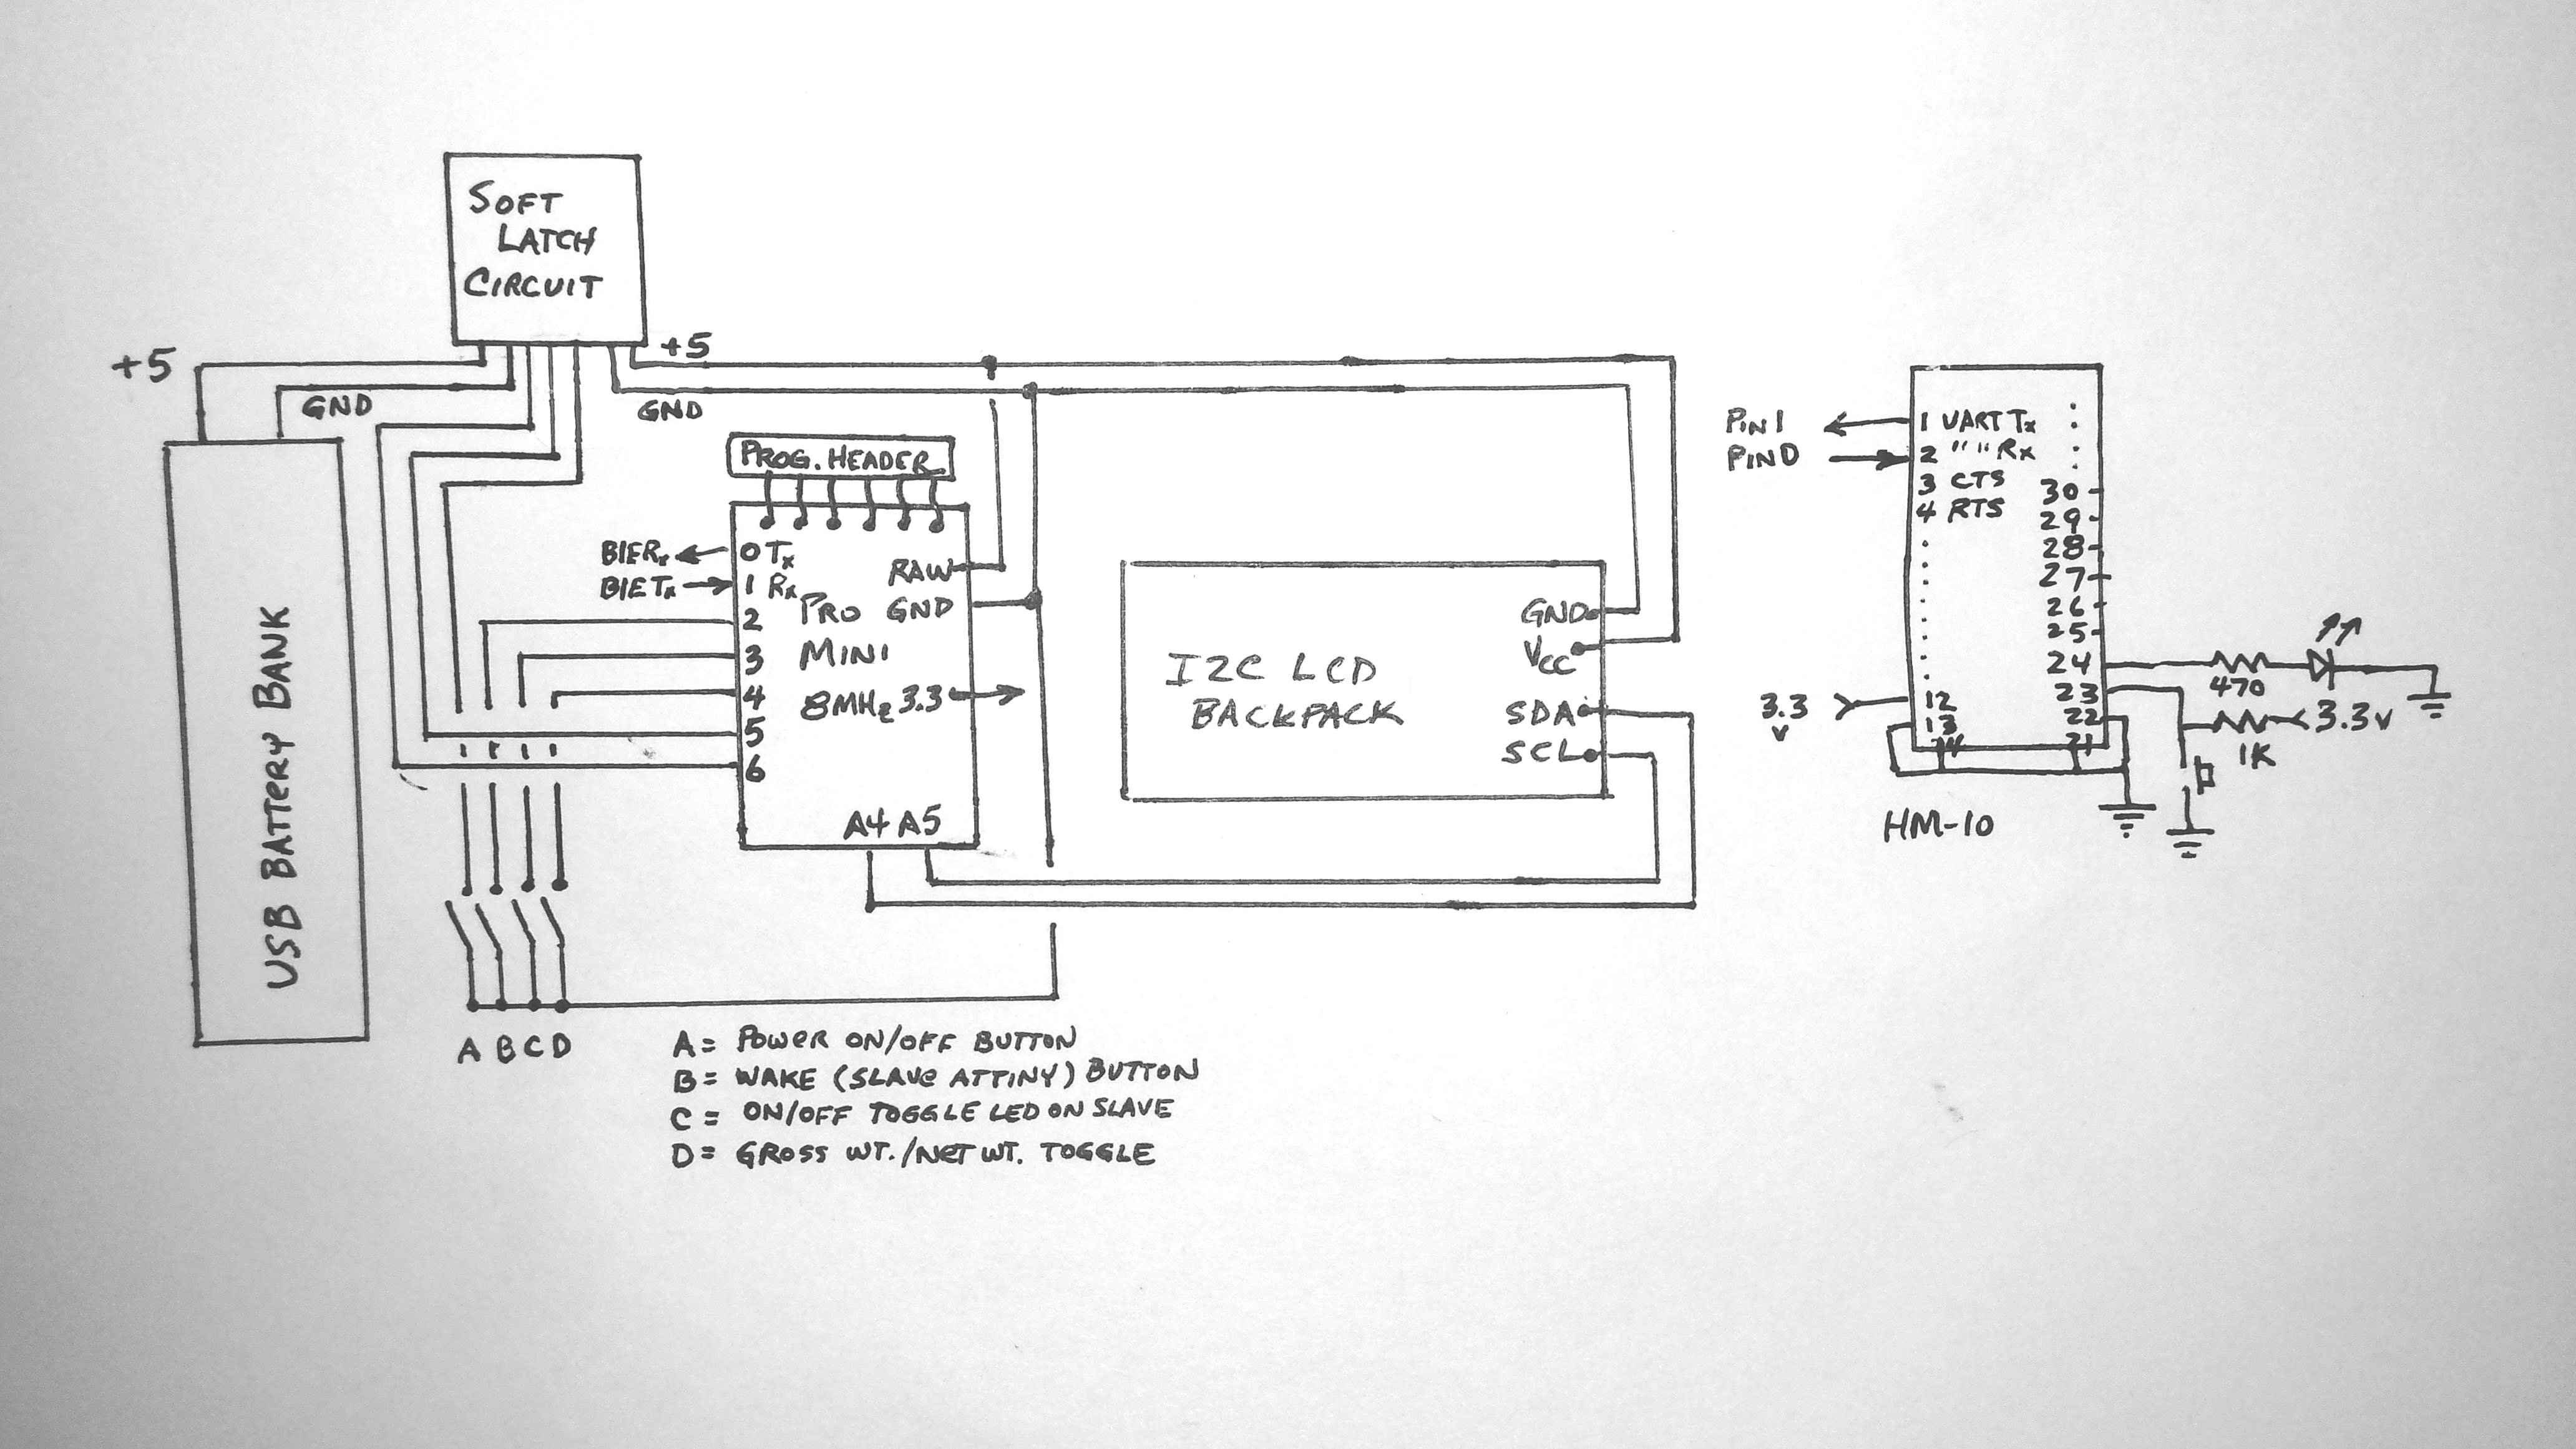 SOFT
LATCH
CIRCUIT
+5
GND
+5
GND
USB BATTERY BANK
PROG. HEADER
BlERx
BlETx
0 Tx
1 Rx
2
3
4
5
6
PRO
MINI
8MHz 3.3
RAW
GND
A4 A5
I2C LCD
BACKPACK
GND
Vcc
SDA
SCL
A B C D
A = POWER ON/OFF BUTTON
B = WAKE (SLAVE ATTINY) BUTTON
C = ON/OFF TOGGLE LED ON SLAVE
D = GROSS WT./NET WT. TOGGLE
PIN 1
PIN 0
1 UART Tx
2 " " Rx
3 CTS
4 RTS
12
13
14
30
29
28
27
26
25
24
23
22
21
3.3
V
470
3.3V
1K
HM-10